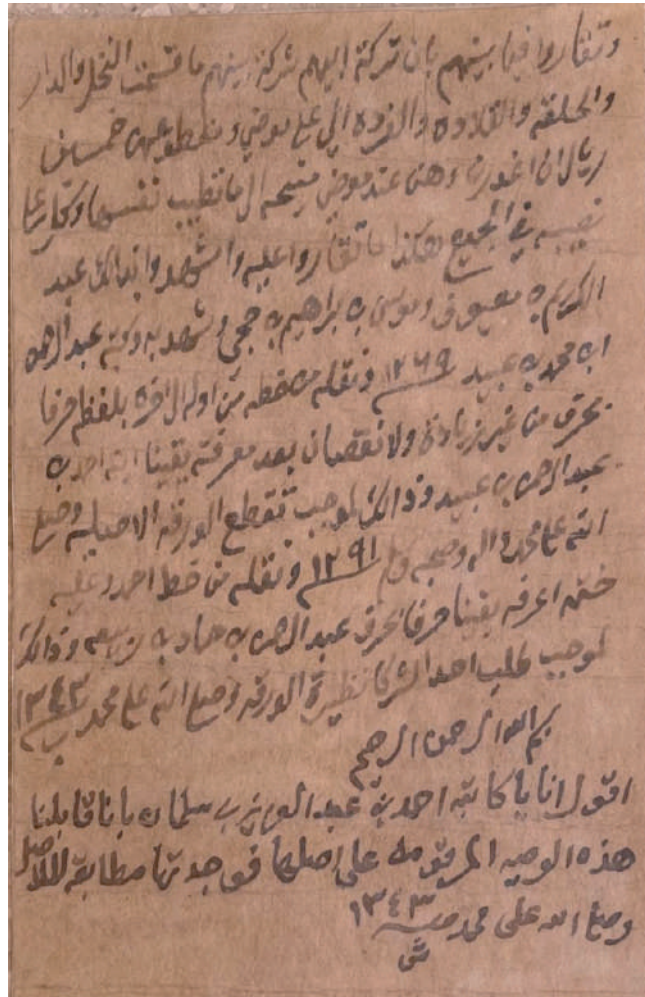 وتقاروا فيما بينهم بان تركة ابيهم شركة بينهم ما قسمت النخل والدار
والحلقه والقلاده والفرده الي على موضي ونطوعهن خمسين
ريال ان اعوزن وهن عند موضي منيحه الى ما تطيب نفسها وكل على
نصيبه في الجميع هكذا ما تقاروا عليه واشهدوا بذالك عبد
الكريم بن معيوف وموسى بن براهيم بن حجي وشهد به وكتبه عبدالرحمن
ابن محمد بن عبيد ١٢٦٩ ونقله من خطه من اوله الى اخره بلفظه حرفا
بحرف من غير زيادة ولا نقصان بعد معرفته يقينا ابنه احمد بن
عبدالرحمن بن عبيد وذالك لموجب تقطع الورقه الاصليه وصلى
الله على محمد واله وصحبه وسلم ١٢٩١ ونقله من خط احمد وعليه
ختمه اعرفه يقينا حرفا بحرف عبدالرحمن بن حماد بن وذالك
لموجب طلب احد الشركا نظيرة الورقه وصلى الله على محمد ١٣٤٣
بسم الله الرحمن الرحيم
اقول انا يا كاتبه احمد بن عبد العزيز بن سلمان بانا قابلنا
هذه الوصيه المرقومه على اصلها فوجدتها مطابقه للاصل
وصلى الله على محمد ١٣٤٣
ش